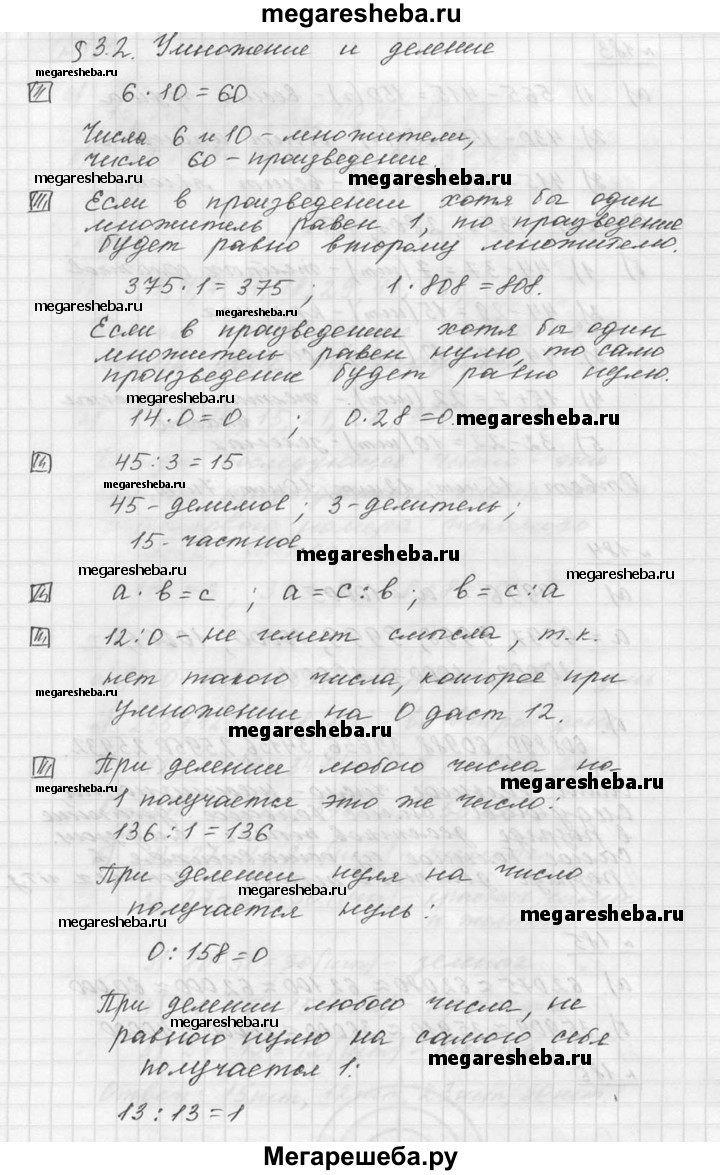 megaresheba.ru
§ 3.2. Умножение и деление
megaresheba.ru
6 · 10 = 60
Числа 6 и 10 – множители,
число 60 – произведение.
megaresheba.ru megaresheba.ru
Если в произведении хотя бы один
множитель равен 1, то празведение
будет равно второму множителю.
375 · 1 = 375 ; 1 · 808 = 808.
megaresheba.ru megaresheba.ru
Если в произведении хотя бы один
множитель равен нулю, то само
произведение будет равно нулю.
megaresheba.ru
14 · 0 = 0 ; 0 · 28 = 0. megaresheba.ru
45 : 3 = 15
megaresheba.ru
45 - делимов ; 3 - делитель ;
15 - частное.
megaresheba.ru
megaresheba.ru megaresheba.ru
a · b = c ; a = c : b ; b = c : a
12 : 0 – не имеет смысла, т.к.
нет такого числа, которое при
megaresheba.ru
умножении на 0 даст 12.
megaresheba.ru
При делении любого числа на
megaresheba.ru megaresheba.ru
1 получается это же число:
136 : 1 = 136
При делении нуля на число
megaresheba.ru
получается нуль:
megaresheba.ru megaresheba.ru
0 : 158 = 0
При делении любого числа, не
megaresheba.ru
равного нулю на самого себя
получается 1:
megaresheba.ru
13 : 13 = 1
Мегарешеба.ру